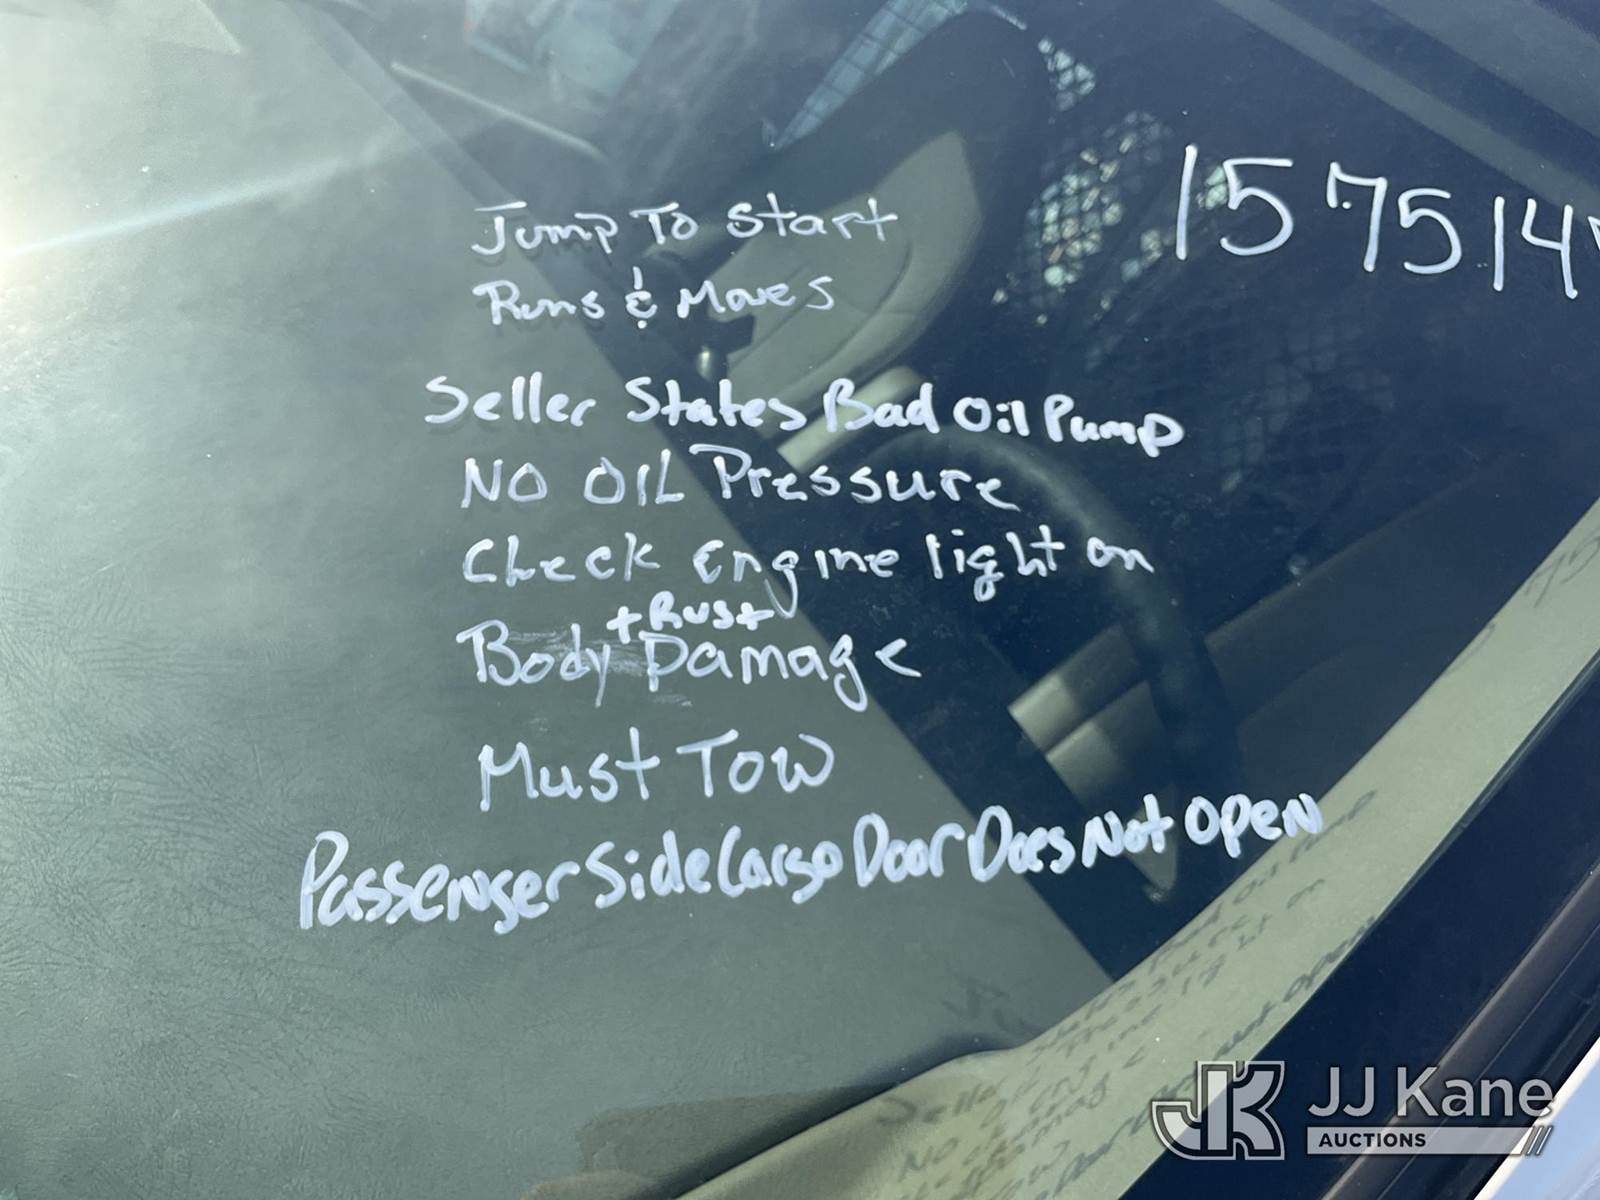 157514
Jump To Start
Runs & Moves
Seller States Bad Oil Pump
NO OIL Pressure
Check Engine light on
+ Rust
Body Damage
Must Tow
Passenger Side Cargo Door Does Not Open
JK JJ Kane
AUCTIONS